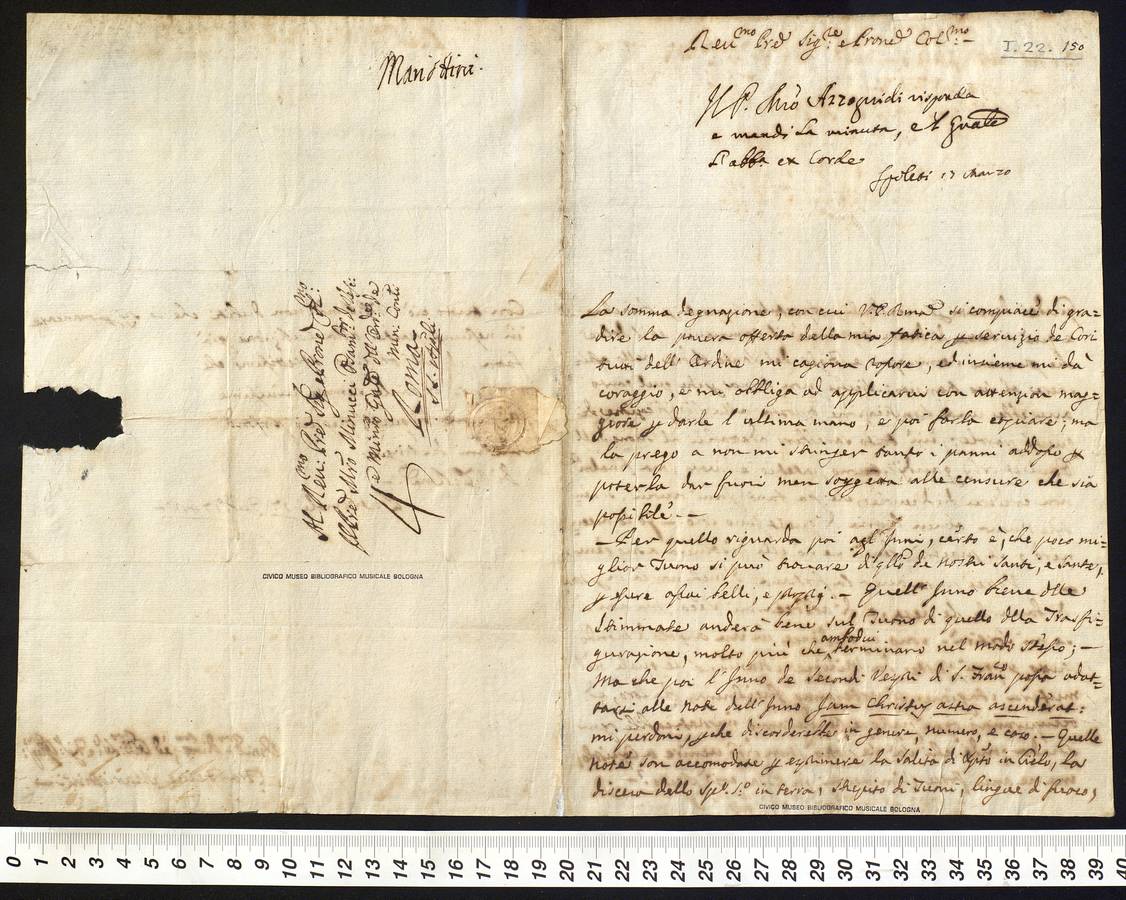 Mario Hirii.
Al Reu:mo Pre Sig:e e Prone Col:mo
Il Pre Mro Minucci
e Minro Gnle dell'Ordine de
Min: Conti
Roma
SS. Apostoli
CIVICO MUSEO BIBLIOGRAFICO MUSICALE BOLOGNA
Reu:mo Pre Sig:re e Prone Col:mo
I. 22. 150
Il P. Mro Azzoguidi risponda
e mandi la minuta, e il Gnale
l'abb: ex Corde
Spoleti 13 Marzo
La somma degnazione, con cui V.P. Rma si compiace di gra=
dire la povera offerta della mia fatica p servizio de Cori
tutti dell'Ordine mi cagiona rossore, ed insieme mi dà
coraggio, e mi obbliga ad applicarvi con attenzion mag=
giore p darle l'ultima mano, e poi farla copiare; ma
la prego a non mi stringer tanto i panni addosso p
poterla dar fuori men soggetta alle censure che sia
possibile. —
— Per quello riguarda poi agl'Inni, certo è, che poco mi=
glior Tuono si può trovare d'qllo de nostri Santi, e Sante,
p essere assai belli, e propj. — Quell'Inno breve delle
Stimmate anderà bene sul Tuono di quello della Trasfi=
gurazione, molto più che amboduи terminano nel modo stesso; —
Ma che poi l'Inno de secondi Vespri di S. Franco possa adat=
tarsi alle note dell'Inno Jam Christus astra ascenderat:
mi perdoni, pche discorderebbe in genere, numero, e caso. — Quelle
note son accomodate p esprimere la salita di Xpto in Cielo, la
discesa dello Spto S:o in terra, strepito di Tuoni, lingue di fuoco,
CIVICO MUSEO BIBLIOGRAFICO MUSICALE BOLOGNA
0 1 2 3 4 5 6 7 8 9 10 11 12 13 14 15 16 17 18 19 20 21 22 23 24 25 26 27 28 29 30 31 32 33 34 35 36 37 38 39 40